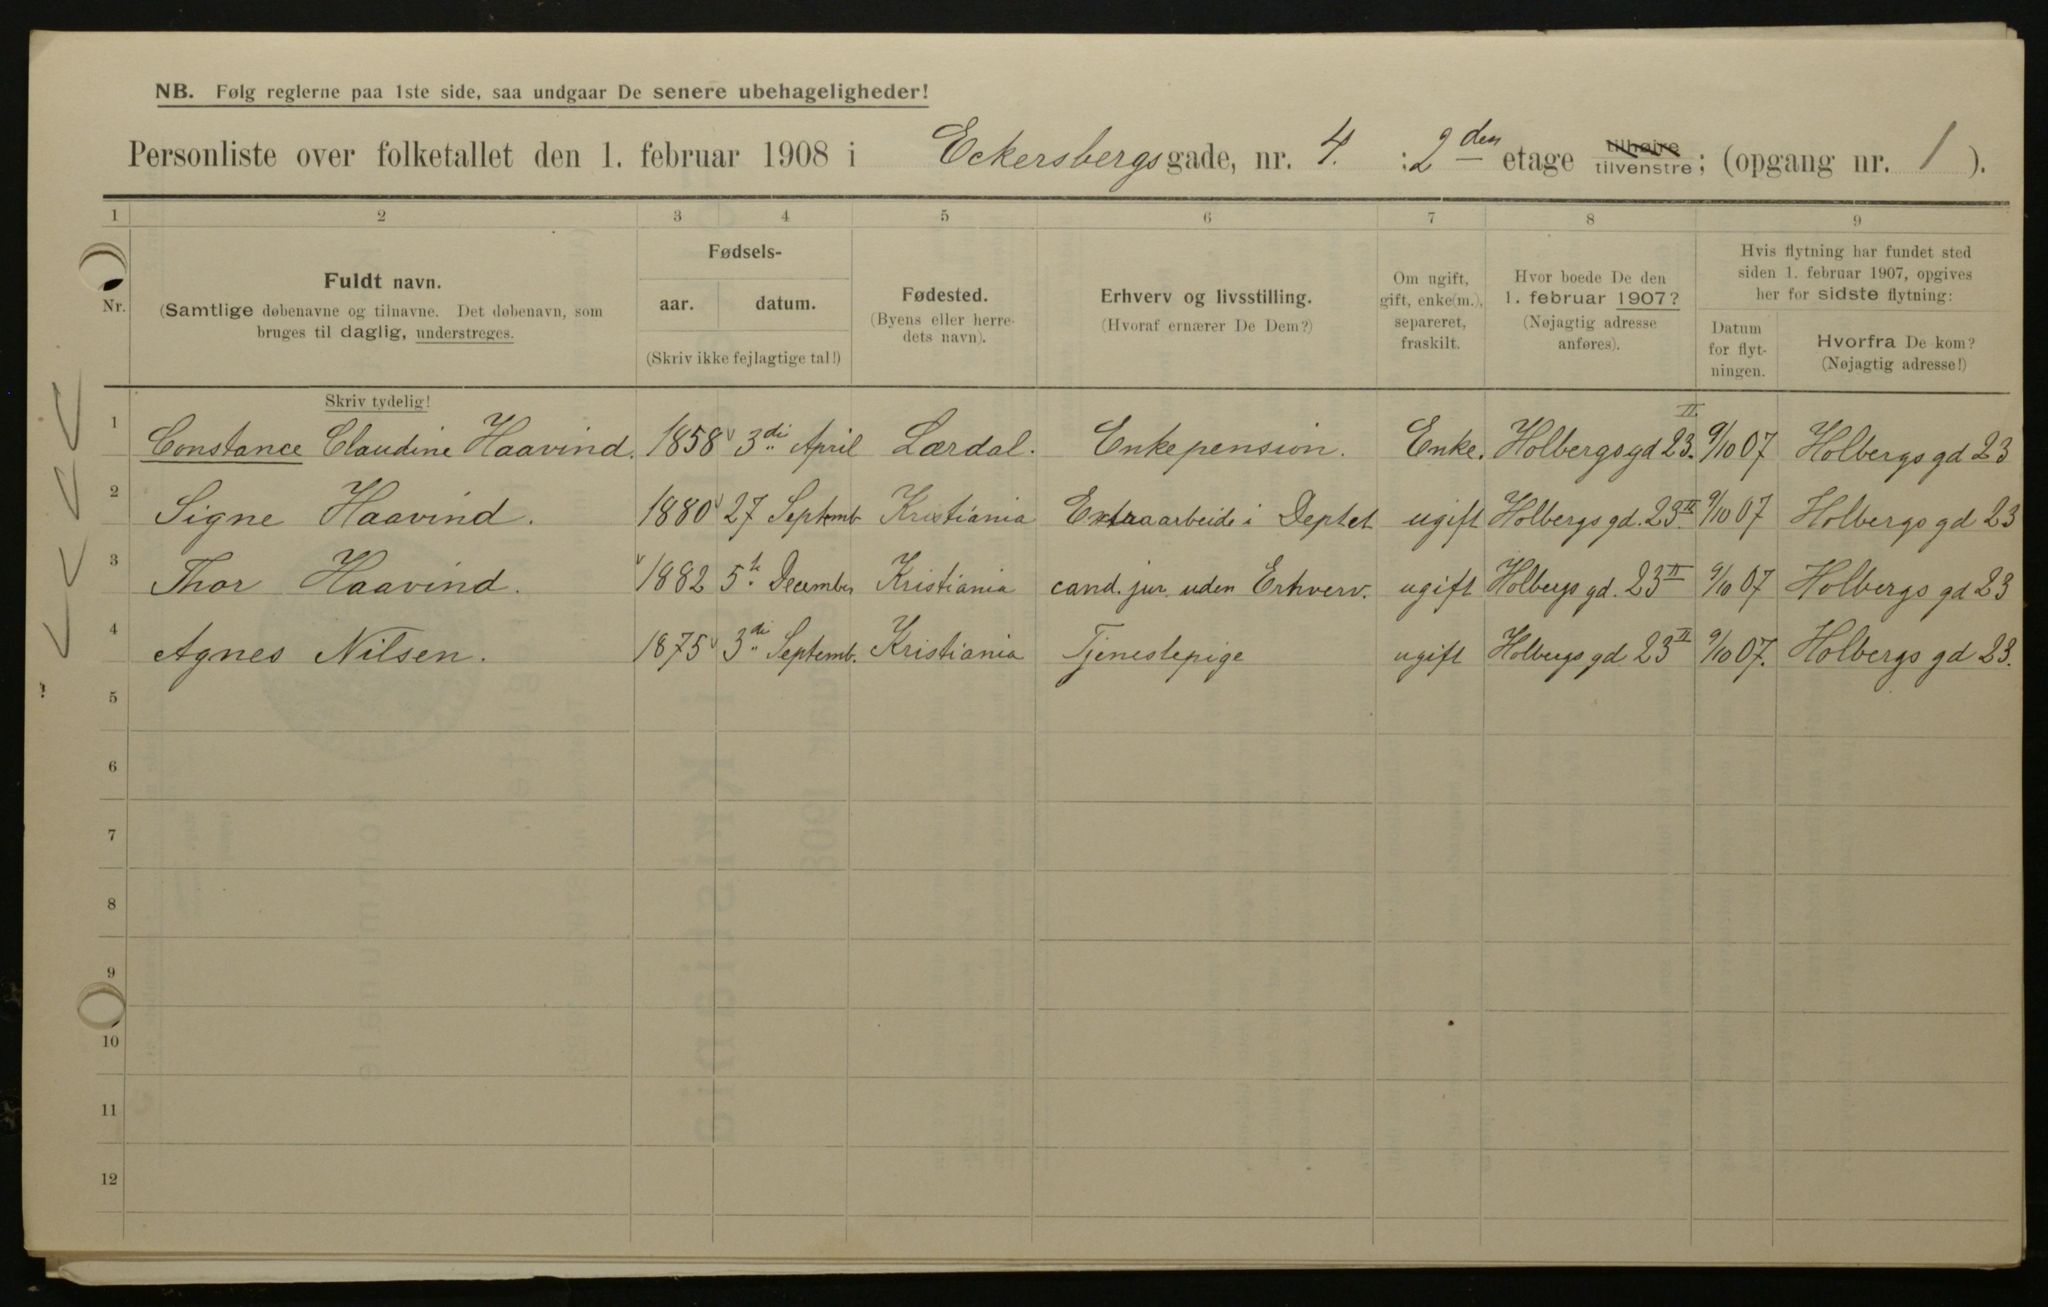 NB. Følg reglerne paa 1ste side, saa undgaar De senere ubehageligheder!
Personliste over folketallet den 1. februar 1908 i Eckersbergsgade, nr. 4. : 2den etage tilhøire tilvenstre; (opgang nr. 1 ).
1 2 3 4 5 6 7 8 9
Nr.
Fuldt navn.
(Samtlige døbenavne og tilnavne. Det døbenavn, som
bruges til daglig, understreges.
Skriv tydelig!
Fødsels-
aar. datum.
(Skriv ikke fejlagtige tal!)
Fødested.
(Byens eller herre-
dets navn).
Erhverv og livsstilling.
(Hvoraf ernærer De Dem?)
Om ugift,
gift, enke(m.),
separeret,
fraskilt.
Hvor boede De den
1. februar 1907?
(Nøjagtig adresse
anføres).
Hvis flytning har fundet sted
siden 1. februar 1907, opgives
her for sidste flytning:
Datum
for flyt-
ningen.
Hvorfra De kom?
(Nøjagtig adresse!)
1 Constance Claudine Haavind. 1858 3di April Lærdal. Enkepension. Enke. Holbergsgd 23. II 9/10 07 Holbergs gd 23
2 Signe Haavind. 1880 27 Septemb Kristiania Extraarbeide i Deptet ugift Holbergs gd. 23 II 9/10 07 Holbergs gd 23
3 Thor Haavind. 1882 5te December Kristiania cand. jur. uden Erhverv. ugift Holbergs gd. 23 II 9/10 07 Holbergs gd 23
4 Agnes Nilsen. 1875 3di Septemb. Kristiania Tjenestepige ugift Holbergs gd 23 II 9/10 07. Holbergs gd 23.
5
6
7
8
9
10
11
12